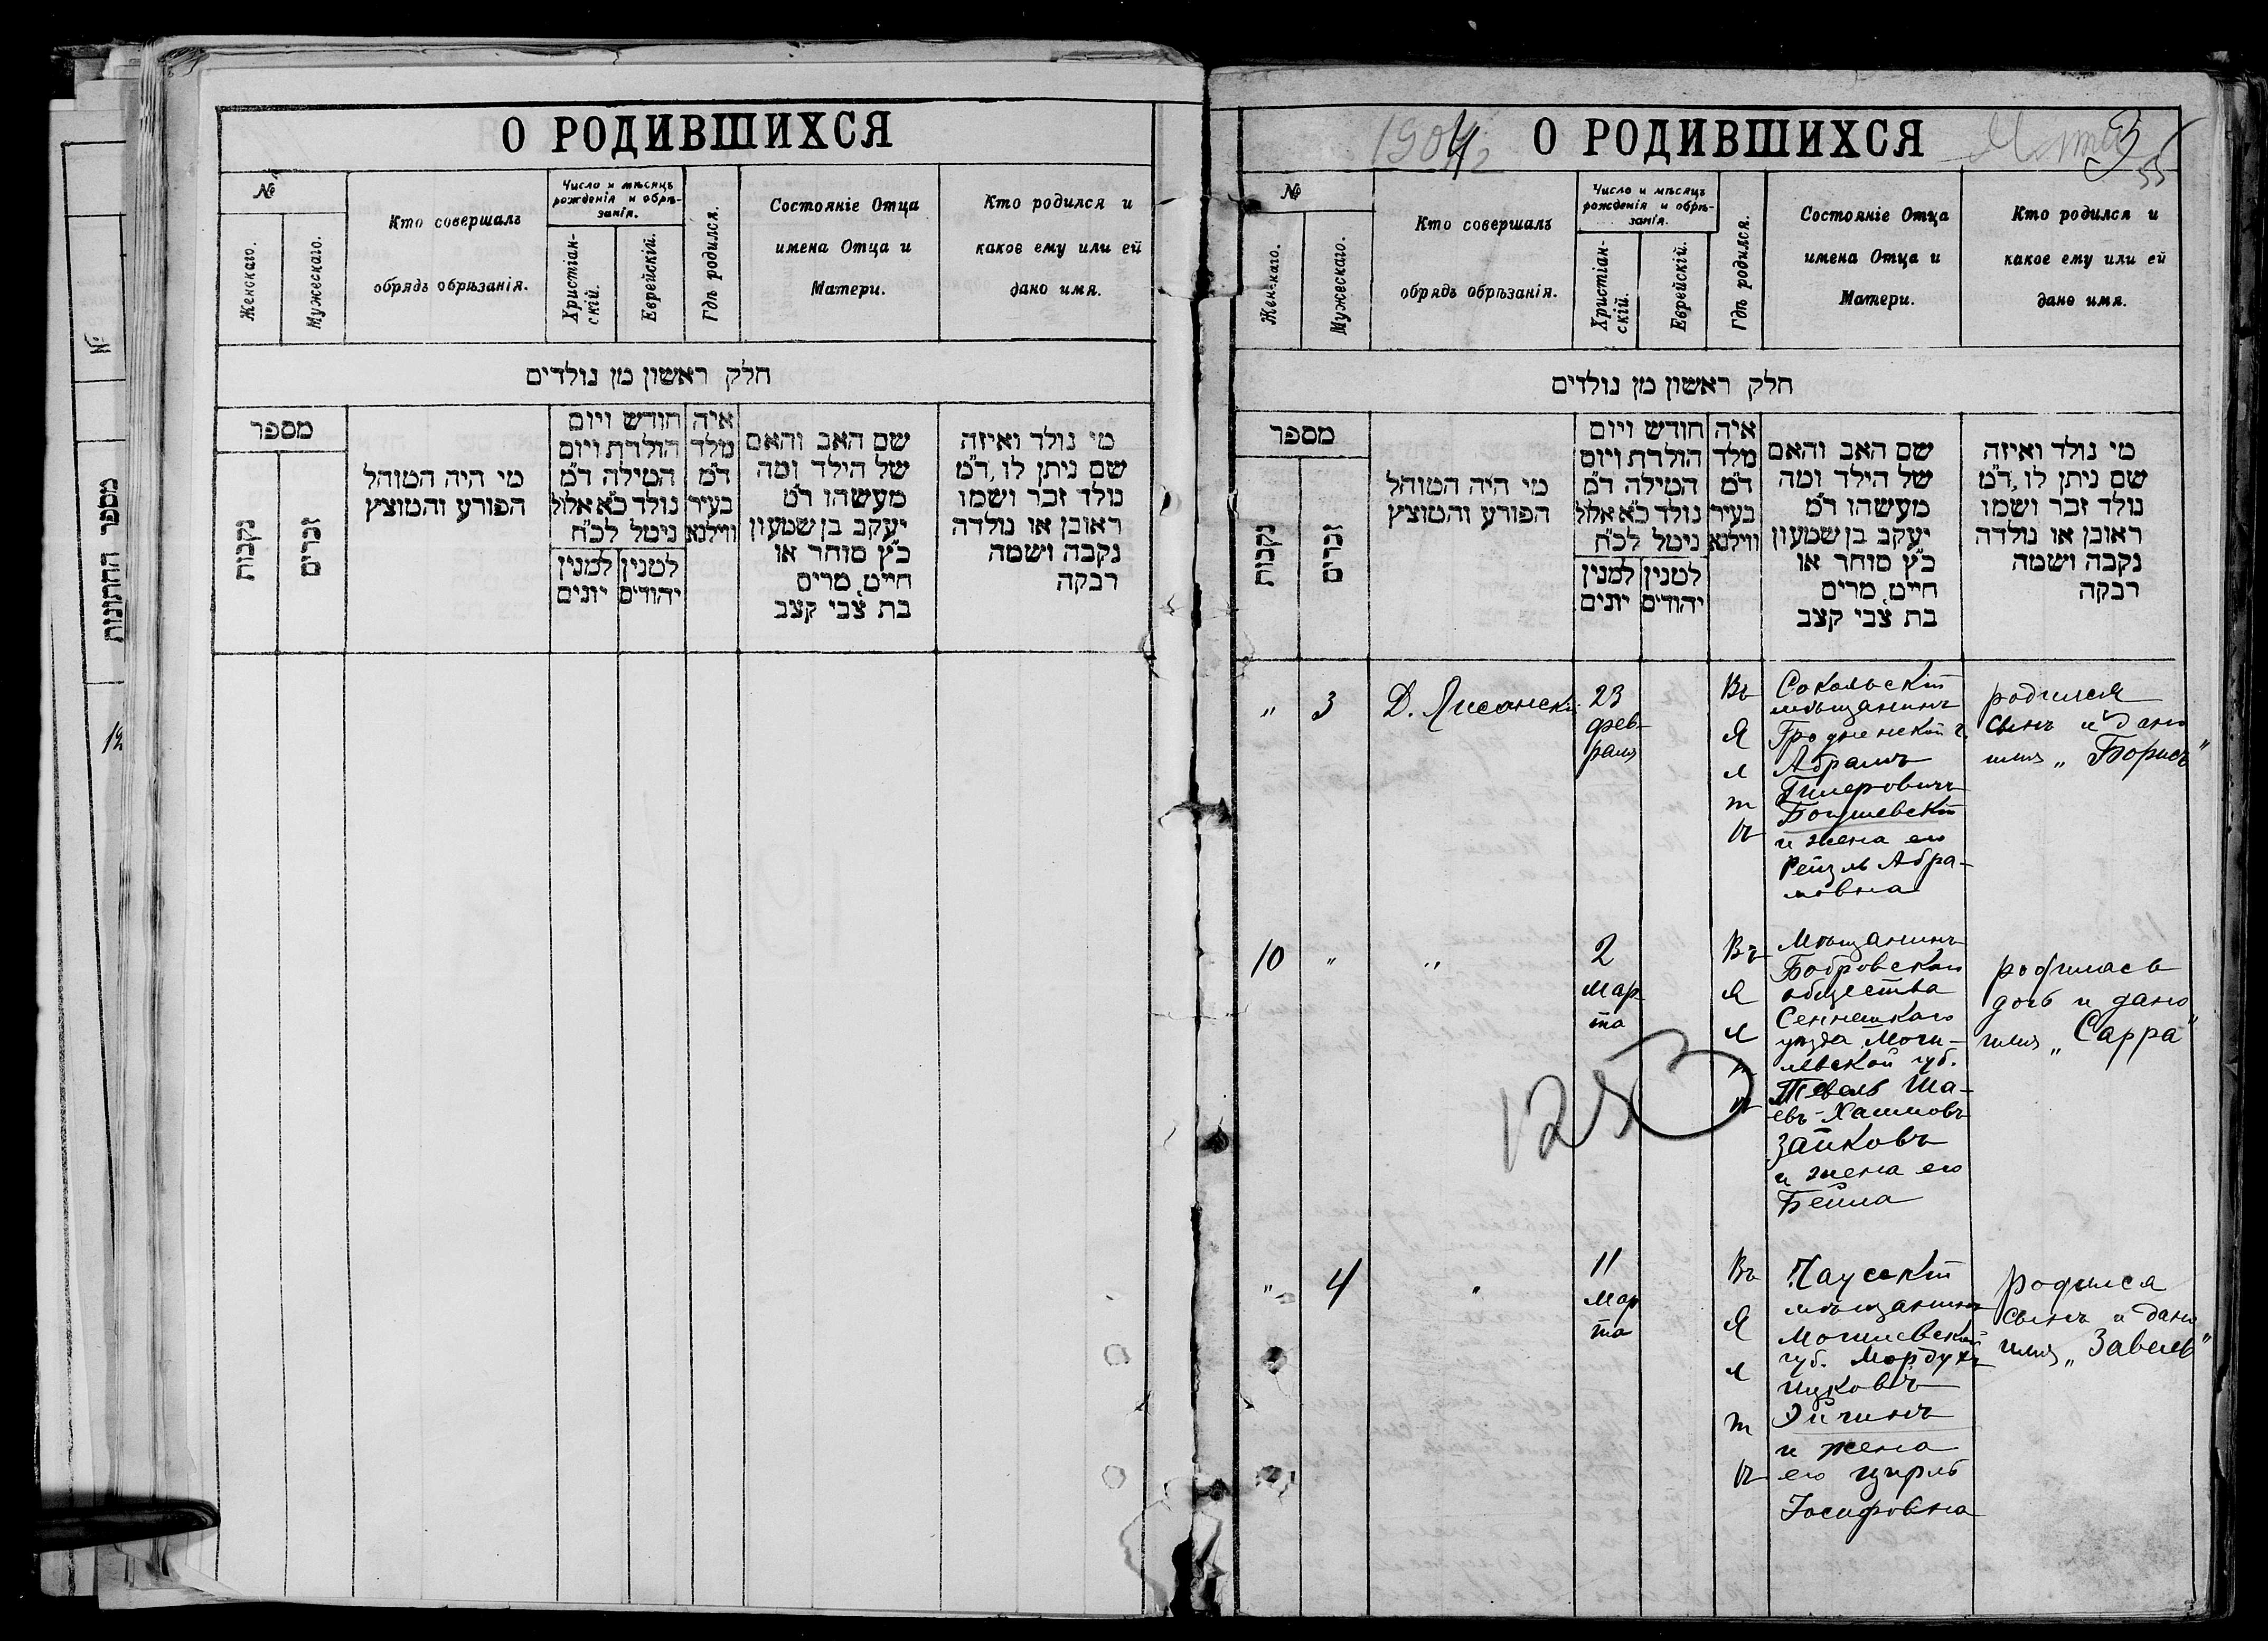 О РОДИВШИХСЯ
№
Женскаго.
Мужескаго.
Кто совершалъ
обрядъ обрѣзанія.
Число и мѣсяцъ
рожденія и обрѣ-
занія.
Христіан-
скій.
Еврейскій.
Гдѣ родился.
Состояніе Отца
имена Отца и
Матери.
Кто родился и
какое ему или ей
дано имя.
חלק ראשון מן נולדים
מספר
נקבות
זכרים
מי היה המוהל
הפורע והמוצץ
חודש ויום
הולדת ויום
המילה ד"מ
נולד כ"א אלול
ניטל לכ"ח
למנין
יונים
למנין
יהודים
איה
מלד
ד"מ
בעיר
ווילנא
שם האב והאם
של הילד ומה
מעשהו ד"מ
יעקב בן שמעון
כ"ץ סוחר או
חייט, מרים
בת צבי קצב
מי נולד ואיזה
שם ניתן לו, ד"מ
נולד זכר ושמו
ראובן או נולדה
נקבה ושמה
רבקה
№
מספר החתונות
1904
О РОДИВШИХСЯ
Ялта
3
55
№
Женскаго.
Мужескаго.
Кто совершалъ
обрядъ обрѣзанія.
Число и мѣсяцъ
рожденія и обрѣ-
занія.
Христіан-
скій.
Еврейскій.
Гдѣ родился.
Состояніе Отца
имена Отца и
Матери.
Кто родился и
какое ему или ей
дано имя.
חלק ראשון מן נולדים
מספר
נקבות
זכרים
מי היה המוהל
הפורע והמוצץ
חודש ויום
הולדת ויום
המילה ד"מ
נולד כ"א אלול
ניטל לכ"ח
למנין
יונים
למנין
יהודים
איה
מלד
ד"מ
בעיר
ווילנא
שם האב והאם
של הילד ומה
מעשהו ד"מ
יעקב בן שמעון
כ"ץ סוחר או
חייט, מרים
בת צבי קצב
מי נולד ואיזה
שם ניתן לו, ד"מ
נולד זכר ושמו
ראובן או נולדה
נקבה ושמה
רבקה
" 3 Д. Лисански
23
фев-
раля
Въ
Я
л
т
ѣ
Сокольскій
мѣщанинъ
Гродненской г.
Абрамъ
Гилеровичъ
Богушевскій
и жена его
Рейзль Абра-
мовна
родился
сынъ и дано
имя „Борисъ"
10 " "
2
мар
та
Въ
Я
л
т
ѣ
Мѣщанинъ
Бобровскаго
общества
Сеннешкаго
уѣзда Моги-
левской губ.
Тевель Ша-
евъ-Хаимовъ
Зайковъ
и жена его
Бейла
родилась
дочь и дано
имя „Сарра"
1253
" 4 "
11
мар
та
Въ
Я
л
т
ѣ
Чаусскій
мѣщанинъ
Могилевской
губ. Мордухъ
Ицковъ
Эйчинъ
и жена
его Цирль
Іосифовна
родился
сынъ и дано
имя „Завель"